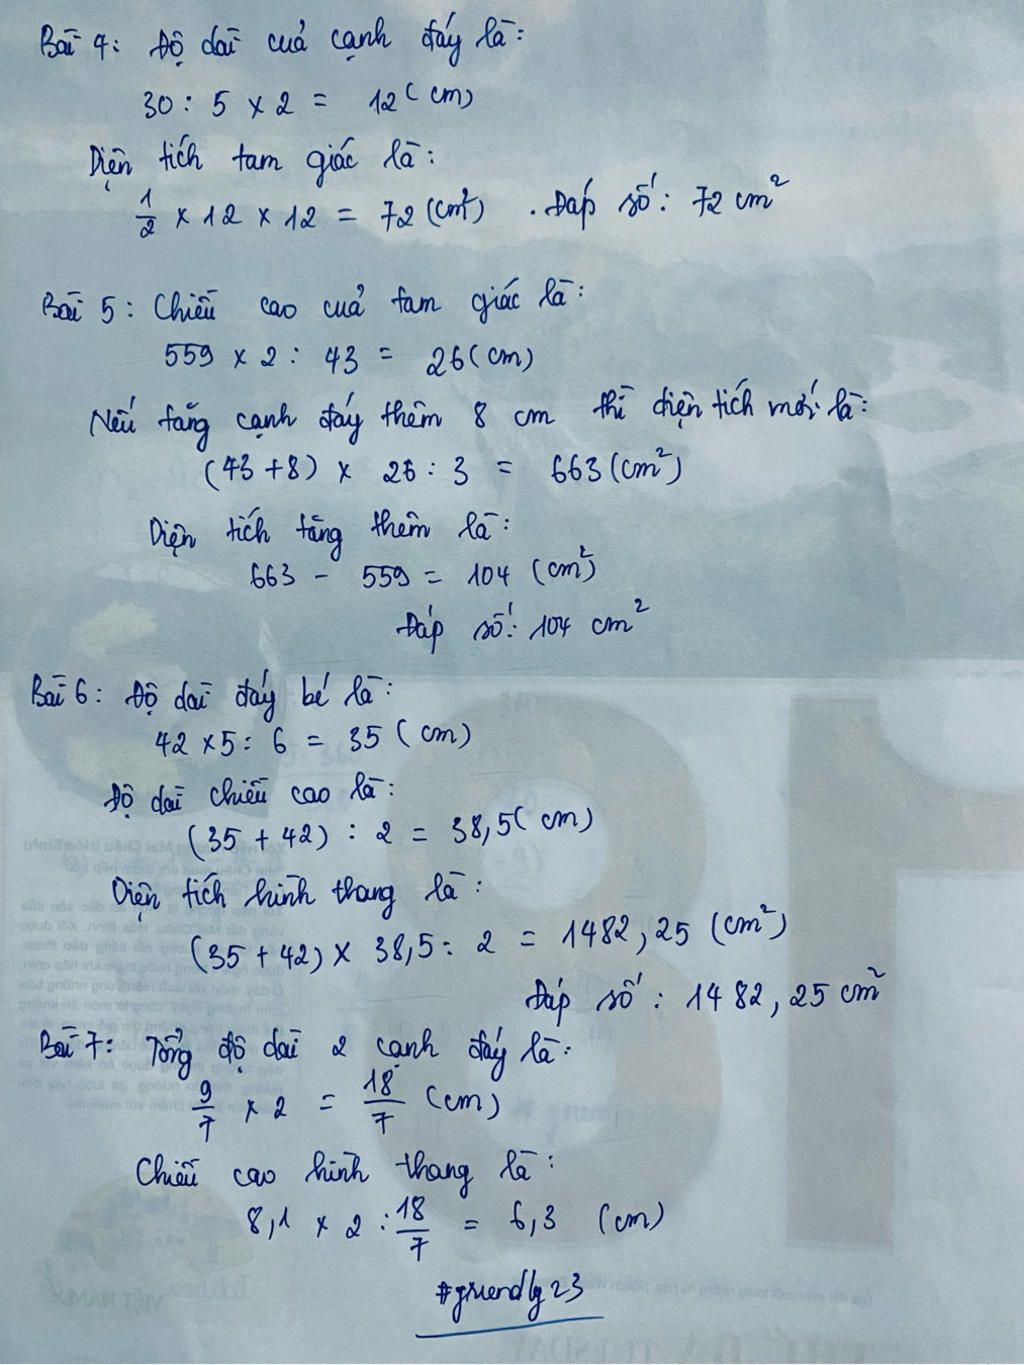 Bài 4: Độ dài của cạnh đáy là:
30 : 5 x 2 = 12 (cm)
Diện tích tam giác là:
1/2 x 12 x 12 = 72 (cm²) . Đáp số: 72 cm²
Bài 5: Chiều cao của tam giác là:
559 x 2 : 43 = 26 (cm)
Nếu tăng cạnh đáy thêm 8 cm thì diện tích mới là:
(43 + 8) x 26 : 3 = 663 (cm²)
Diện tích tăng thêm là:
663 - 559 = 104 (cm²)
Đáp số: 104 cm²
Bài 6: Độ dài đáy bé là:
42 x 5 : 6 = 35 (cm)
Độ dài chiều cao là:
(35 + 42) : 2 = 38,5 (cm)
Diện tích hình thang là:
(35 + 42) x 38,5 : 2 = 1482,25 (cm²)
Đáp số: 1482,25 cm²
Bài 7: Tổng độ dài 2 cạnh đáy là:
9/7 x 2 = 18/7 (cm)
Chiều cao hình thang là:
8,1 x 2 : 18/7 = 6,3 (cm)